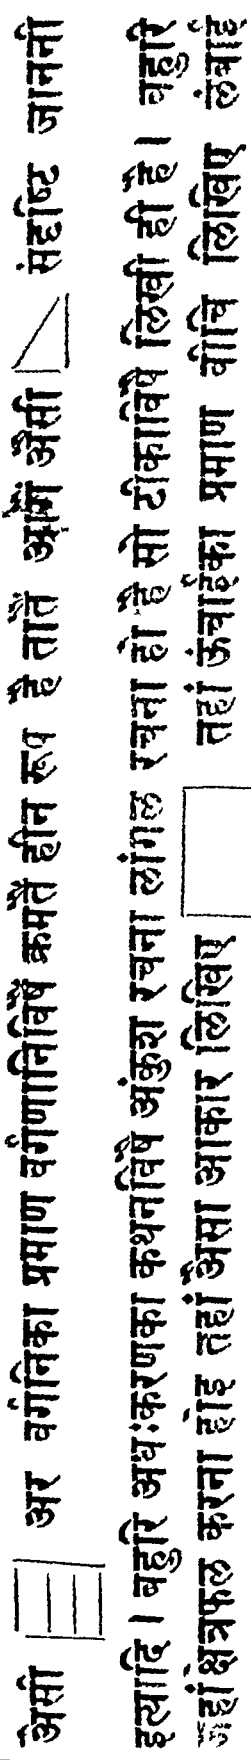 असी अर वर्गनिका प्रमाण वर्गणानिविषैं क्रमतैं हीन रूप है तातैं आगैं असी संदृष्टि जाननी
इत्यादि । बहुरि अधःकरणका कथनविषैं अंकुश रचना लांगल रचना हो है सो टीकाविषै लिखी ही है । बहुरि
जहां क्षेत्रफल करना होइ तहां असा आकार लिखिए तहां ऊंचाईका प्रमाण बीचि लिखिए लंबाई